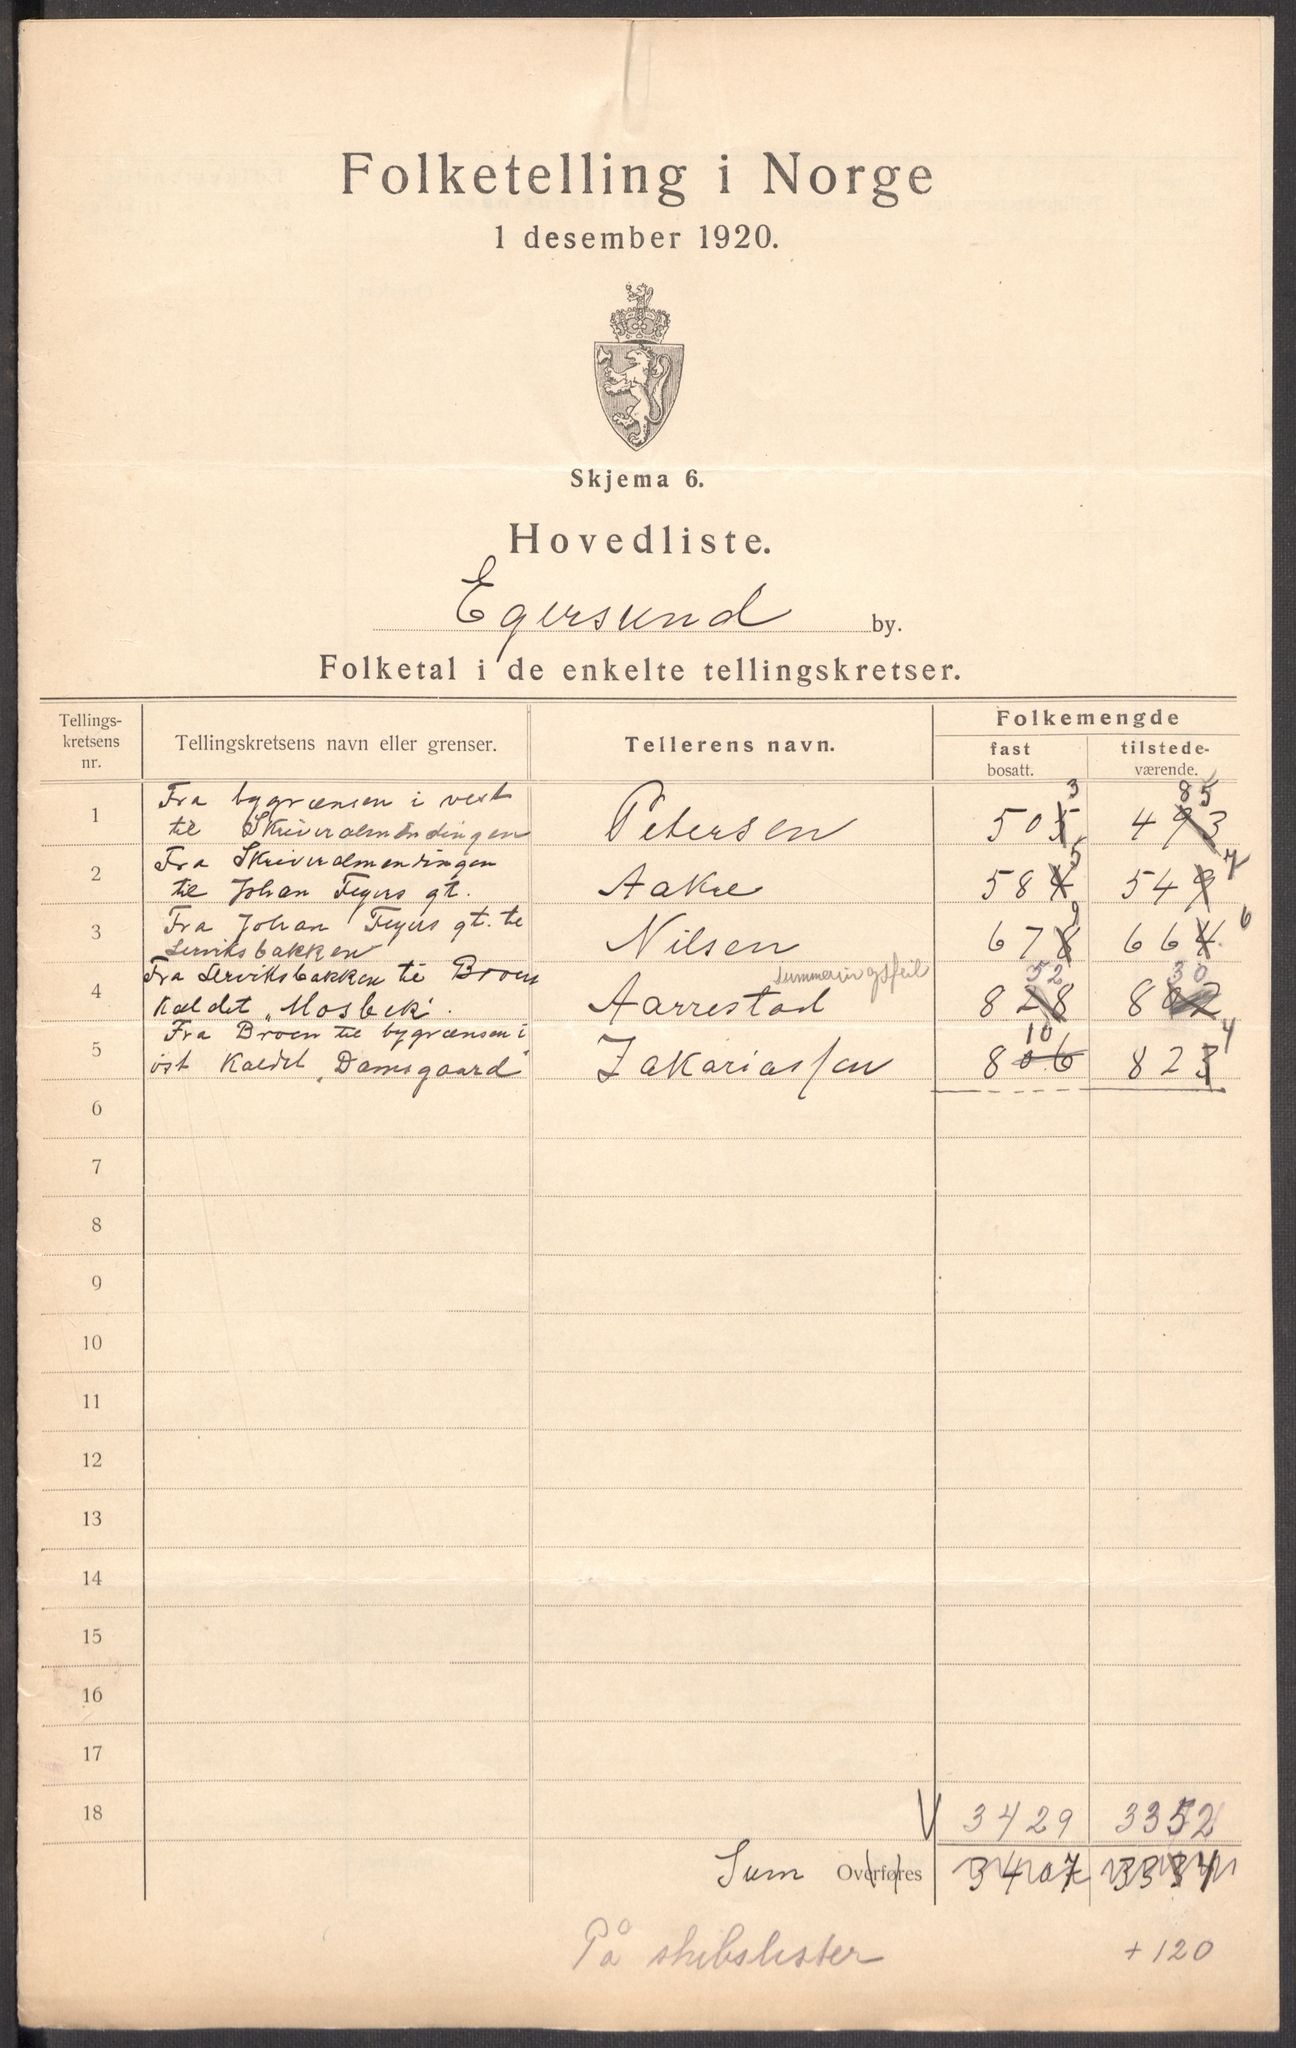 Folketelling i Norge
1 desember 1920.
Skjema 6.
Hovedliste.
Egersund by.
Folketal i de enkelte tellingskretser.
Tellings-
kretsens
nr.
Tellingskretsens navn eller grenser.
Tellerens navn.
Folkemengde
fast
bosatt.
tilstede-
værende.
1 Fra bygrænsen i vest
til Skriveralmendingen Petersen 505 3 493 85
2 Fra Skriveralmenningen
til Johan Feyers gt. Aakre 584 5 549 7
3 Fra Johan Feyers gt. te
Lerviksbakken Nilsen 678 9 664 6
4 Fra Lerviksbakken te Broen
kaldet "Mosbek". Aarrestad summeringsfeil 828 52 802 30
5 Fra Broen te bygrænsen i
øst kaldet "Damsgaard" Zakariassen 806 10 823 4
6
7
8
9
10
11
12
13
14
15
16
17
18 3429 3352
Sum Overføres 3407
På skibslister +120